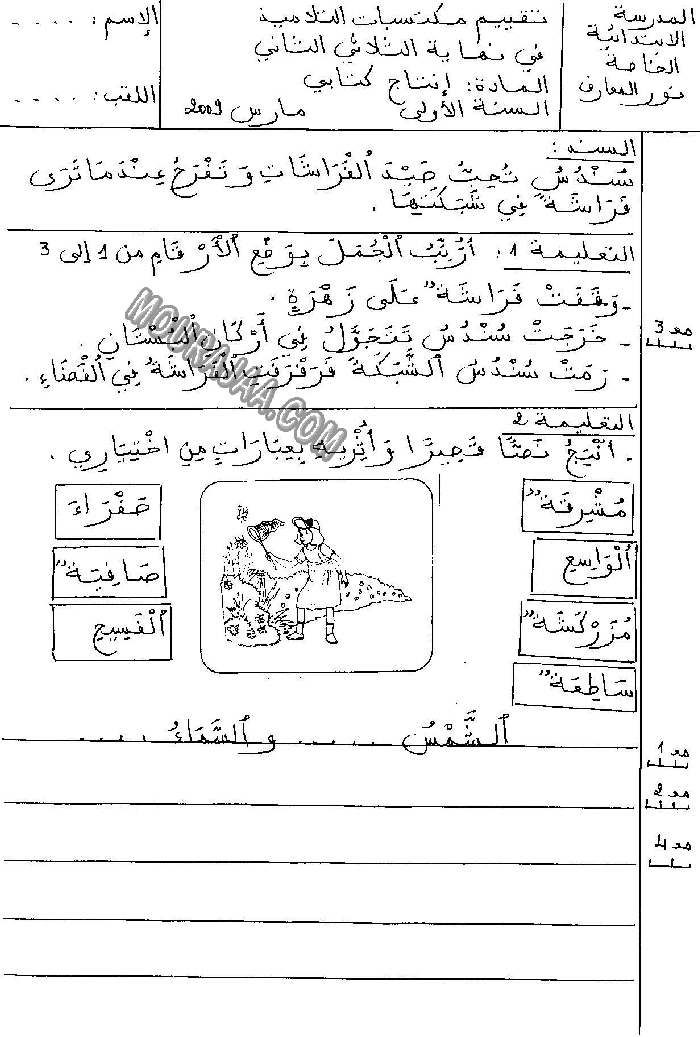 المدرسة
الابتدائية
الخاصة
نور المعارف
تقييم مكتسبات التلاميذ
في نهاية الثلاثي الثاني
المادة: إنتاج كتابي
السنة الأولى مارس 2009
الإسم: . . . . .
اللقب: . . . .
السند:
سُنْدُسُ تُحِبُّ صَيْدَ ٱلْفَرَاشَاتِ وَتَفْرَحُ عِنْدَمَا تَرَى
فَرَاشَةً فِي شَبَكَتِهَا .
التعليمة 1: أُرَتِّبُ ٱلْجُمَلَ بِوَضْعِ ٱلْأَرْقَامِ من 1 إلى 3
- وَقَفَتْ فَرَاشَةٌ عَلَى زَهْرَةٍ .
- خَرَجَتْ سُنْدُسُ تَتَجَوَّلُ فِي أَرْكَانِ ٱلْبُسْتَانِ .
- رَمَتْ سُنْدُسُ ٱلشَّبَكَةَ فَرَفْرَفَتِ ٱلْفَرَاشَةُ فِي ٱلْفَضَاءِ.
مع 3
التعليمة 2
- أُنْتِجُ نَصًّا قَصِيرًا وَأُثْرِيهِ بِعِبَارَاتٍ مِنِ اخْتِيَارِي .
مُشْرِقَةٌ
ٱلْوَاسِعِ
مُزَرْكَشَةٌ
سَاطِعَةٌ
صَفْرَاءَ
صَافِيَةٌ
ٱلْفَسِيحِ
ٱلشَّمْسُ . . . . . وٱلسَّمَاءُ . . . .
مع 1
مع 2
مع 4
MOURAJAA.COM